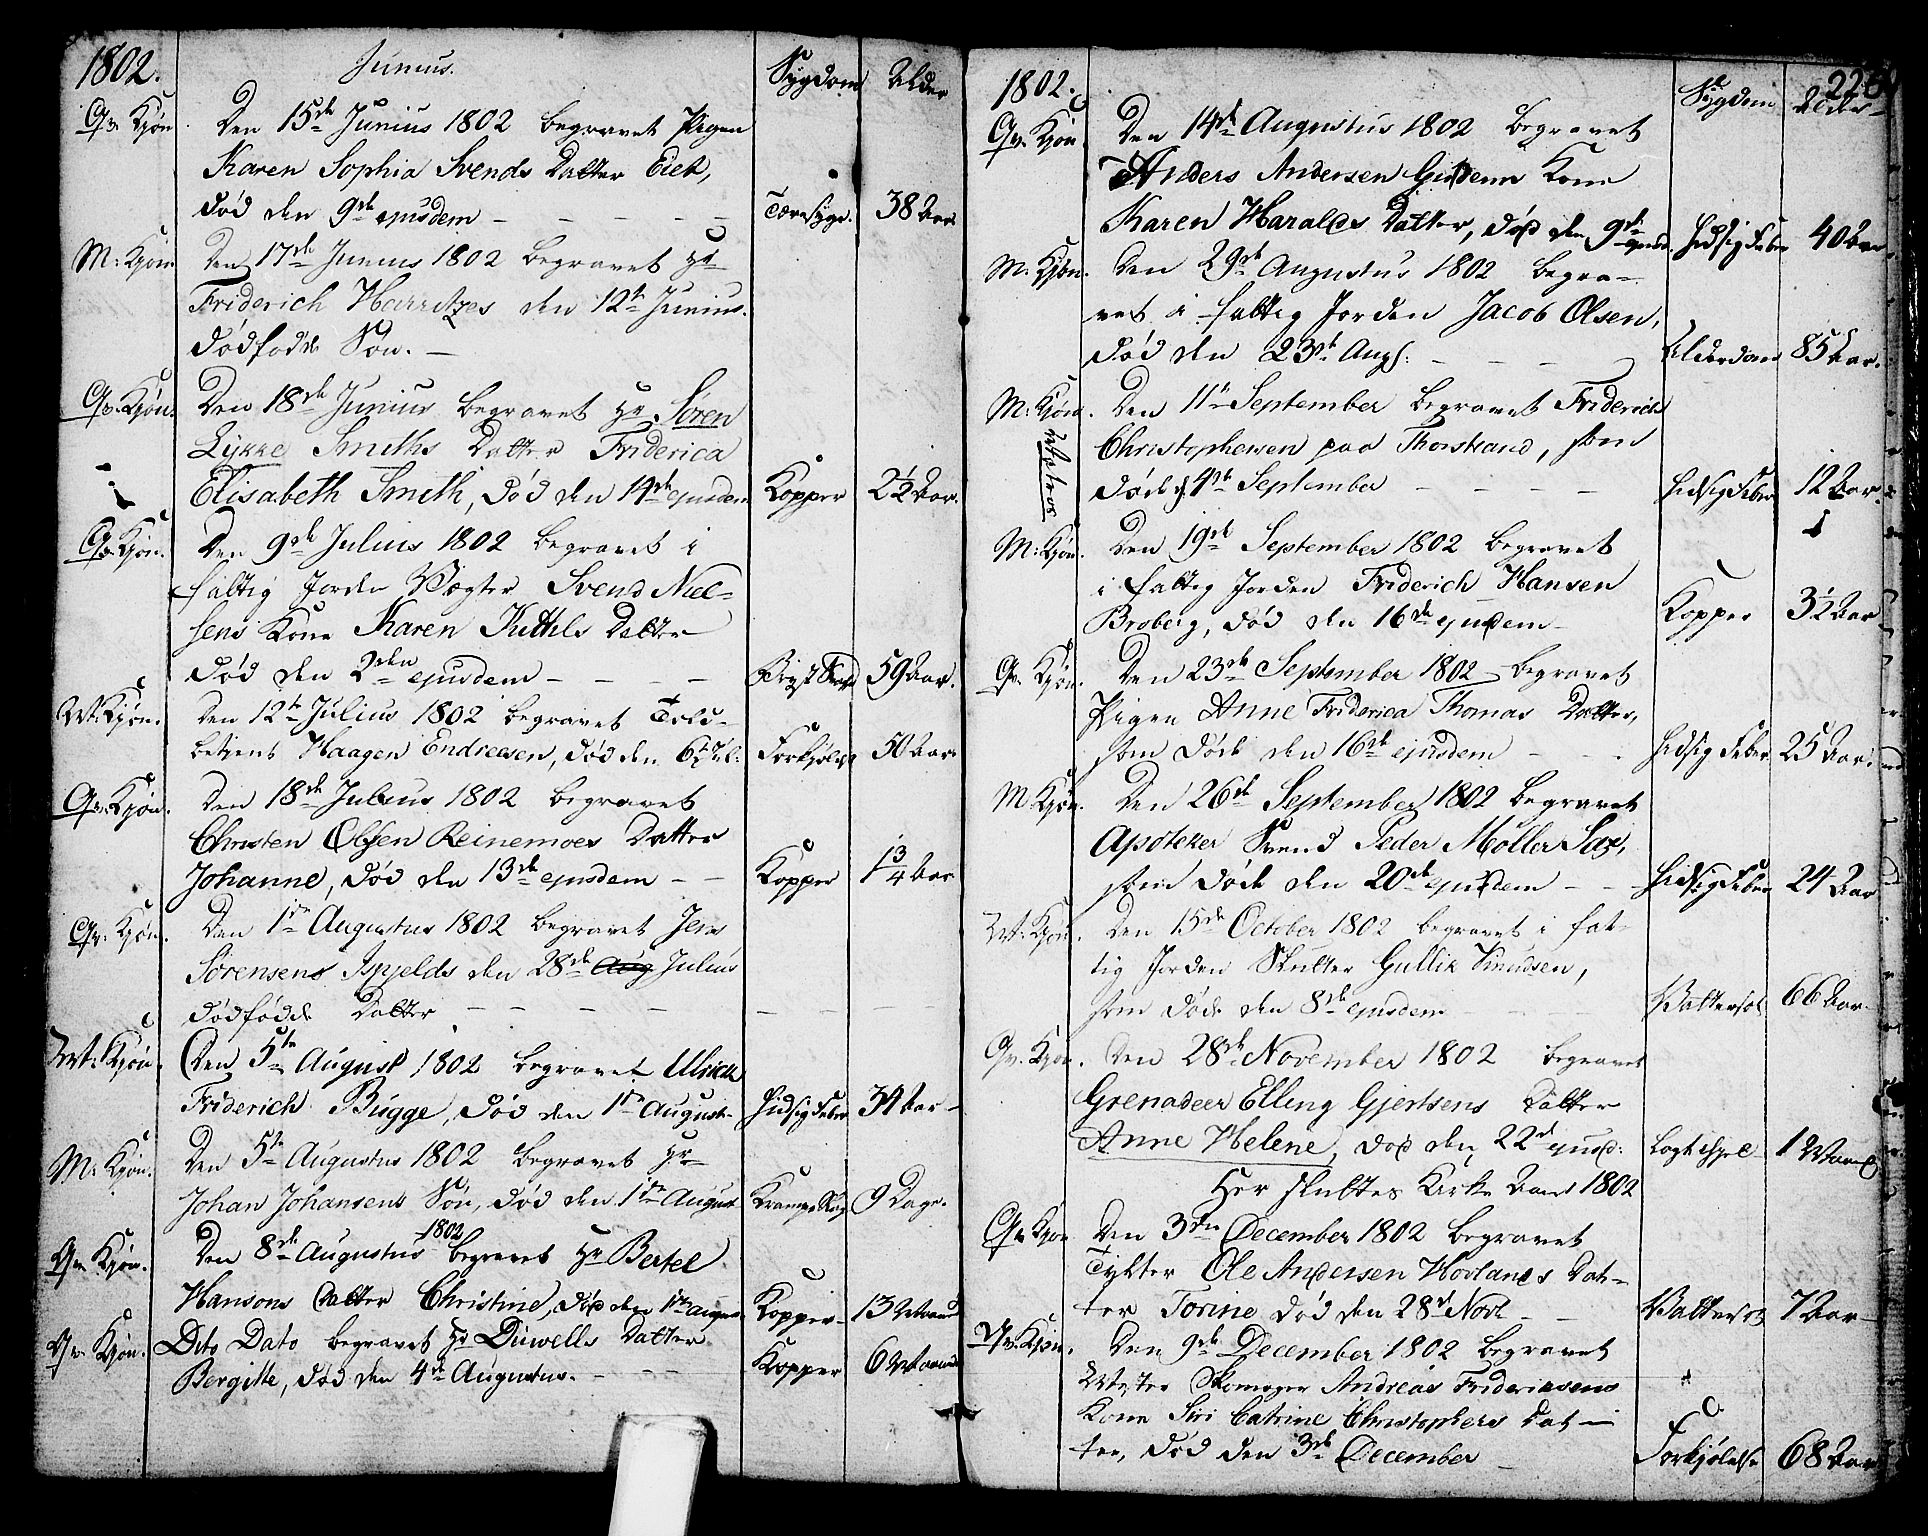 1802. Junius. Sygdom Alder
Qv. Kjøn. Den 15de Junius 1802 begravet Pigen
Karen Sophia Svends Datter Eieb,
død den 9de ejusdem – – – – – Tæresyge. 38 Aar
M: Kjøn Den 17de Junius 1802 begravet Hr
Friderich Harritzes den 12te Junius
dødfødde Søn. –
Qv. Kjøn. Den 18de Junius begravet Hr. Sören
Lykke Smiths Datter Friderica
Elisabeth Smith, død den 14de ejusdem Kopper 2½ Aar.
Qv. Kjøn. Den 9de Julius 1802 begravet i
fattig Jorden Vægter Svend Niel-
sens Kone Karen Kittils Datter
død den 2den ejusdem – – – – 59 Aar.
M: Kjøn. Den 12te Julius 1802 begravet Told-
betient Haagen Endresen, død den 6te Jul: Forkjølelse 50 Aar
Qv. Kjøn. Den 18de Julius 1802 begravet
Christen Olssen Reinemoes Datter
Johanne, død den 13de ejusdem – – Kopper 1¾ Aar
Qv. Kjøn. Den 1ste Augustus 1802 begravet Jens
Sörensens Ispjelds den 28de Aug Julius
dødfødde Datter – – – – – – – –
M: Kjøn. Den 5te August 1802 begravet Ulrich
Friderich Bugge, død den 1ste August. Hidsig Feber 34 Aar –
M: Kjøn. Den 5te Augustus 1802 begravet Hr
Johan Johansens Søn, død den 1ste August Krampe Slag 9 Dage.
Qv. Kjøn. Den 8de Augustus 1802 begravet Hr Bertel
Hansons Datter Christine, død den 1ste August Kopper – 13 Maaned
Qv. Kjøn. Dito Dato begravet Hr Duwells Datter
Bergitte, død den 4de Augustus. – – – Kopper 6 Maaned
1802. Sygdom Alder
Qv. Kjøn. Den 14de Augustus 1802 begravet
Anders Andersen Kone
Karen Haralds Datter, død den 9de ejusd. Hidsig Feber 40 Aar
M: Kjøn. Den 29de Augustus 1802 begra-
vet i fattig Jorden Jacob Olsen,
død den 23de Augs: – – – Alderdom 85 Aar.
M: Kjøn. Den 11te September begravet Friderich
Matros Christophersen paa Thorstrand, som
døde d. 4de September – – – – Hidsig Feber 12 Aar
M: Kjøn. Den 19de September 1802 begravet
i fattig Jorden Friderich Hansen
Broberg, død den 16de ejusdem – Kopper 3½ Aar
Qv. Kjøn. Den 23de September 1802 begravet
Pigen Anne Friderica Thomas Datter,
som døde den 16de ejusdem – – Hidsig Feber 25 Aar.
M: Kjøn. Den 26de September 1802 begravet
Apoteker Svend Peder Möller Sax,
som døde den 20de ejusdem – – – Hidsig Feber 24 Aar
M: Kjøn. Den 15de October 1802 begravet i fat-
tig Jorden Skutter Gullik Knudsen,
som døde den 8de ejusdem – – – Vattersot 66 Aar
Qv. Kjøn. Den 28de November 1802 begravet
Grenadeer Elling Gjertsens Datter
Anne Helene, død den 22de ejusd: 1 Maaned
Her sluttes Kirke Aaret 1802
Qv. Kjøn Den 3die December 1802 begravet
Ole Andersen Hovlands Dat-
ter Torine død den 28de Novb – – Vattersot 7 Aar –
Qv. Kjøn. Den 9de December 1802 begravet
Mester Skomager Andreas Friderichsens
Kone Siri Catrine Christophers Dat –
ter, død den 3de December – Forkjølelse 68 Aar